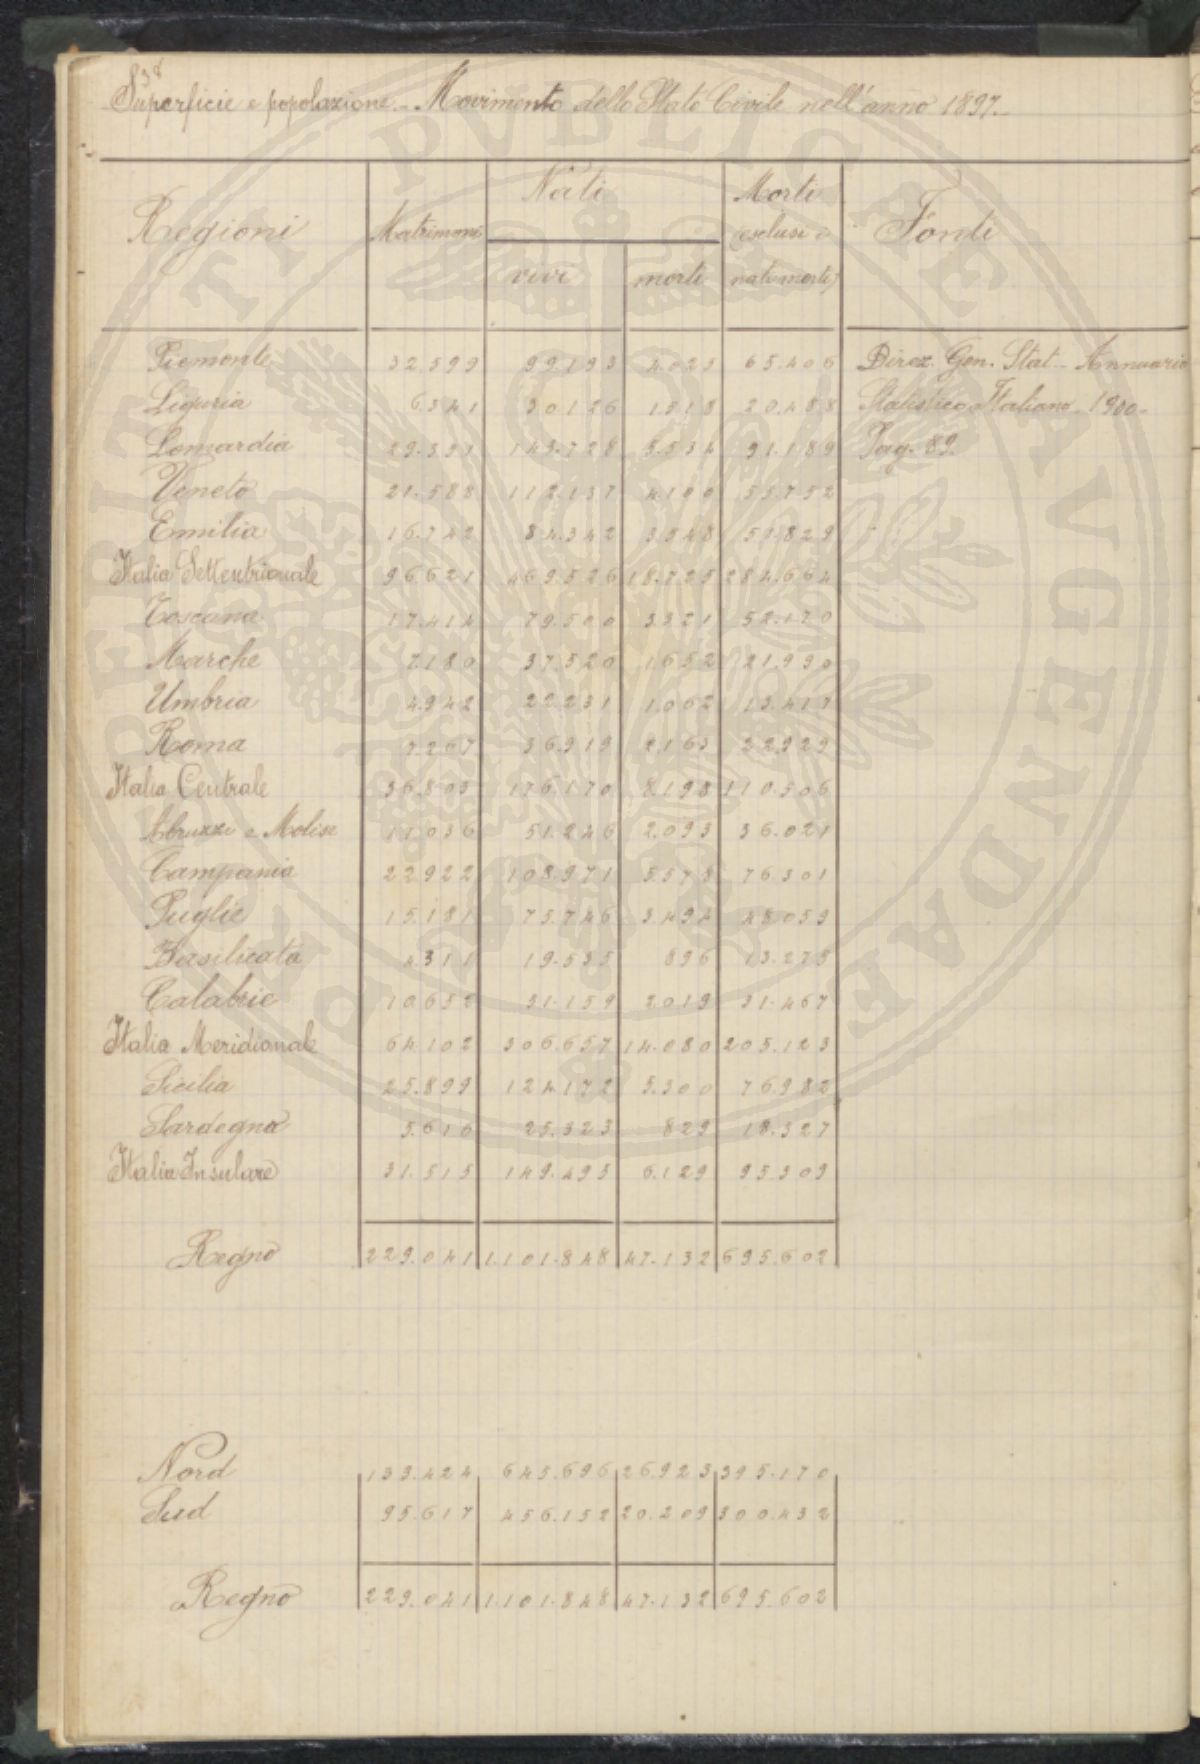 38
Superficie e popolazione - Movimento dello Stato Civile nell'anno 1897.-
Regioni Matrimoni Nati Morti Fonti
(esclusi i
vivi morti nati-morti)
Piemonte 22.599 99.193 4.025 65.406 Direz. Gen. Stat.- Annuario
Liguria 6.341 30.126 1.518 20.488 Statistico Italiano - 1900-
Lomardia 29.351 143.728 5.534 91.189 Pag. 89.
Veneto 21.588 112.137 4.100 55.752
Emilia 16.742 84.342 3.548 51.829
Italia Settentrionale 96.621 469.526 18.725 284.664
Toscana 17.414 79.500 3321 52.170
Marche 7.180 37.520 1.652 21.990
Umbria 4.942 22231 1.062 13.417
Roma 7.267 36.919 2.163 22929
Italia Centrale 36.803 176.170 8.198 110.506
Abruzzi e Molise 11.036 51.246 2.093 36.021
Campania 22922 108.971 5.578 76.301
Puglie 15.181 75.746 3.494 48.059
Basilicata 4311 19.535 896 13.275
Calabrie 10.652 51.159 2.019 31.467
Italia Meridionale 64.102 306.657 14.080 205.123
Sicilia 25.899 124.172 5.300 76.982
Sardegna 5.616 25.323 829 18.327
Italia Insulare 31.515 149.495 6.129 95.309
Regno 229.041 1.101.848 47.132 695.602
Nord 133.424 645.696 26.923 395.170
Sud 95.617 456.152 20.209 300.432
Regno 229.041 1.101.848 47.132 695.602
PROVEHITO
PUBLICAE AVGENDAE